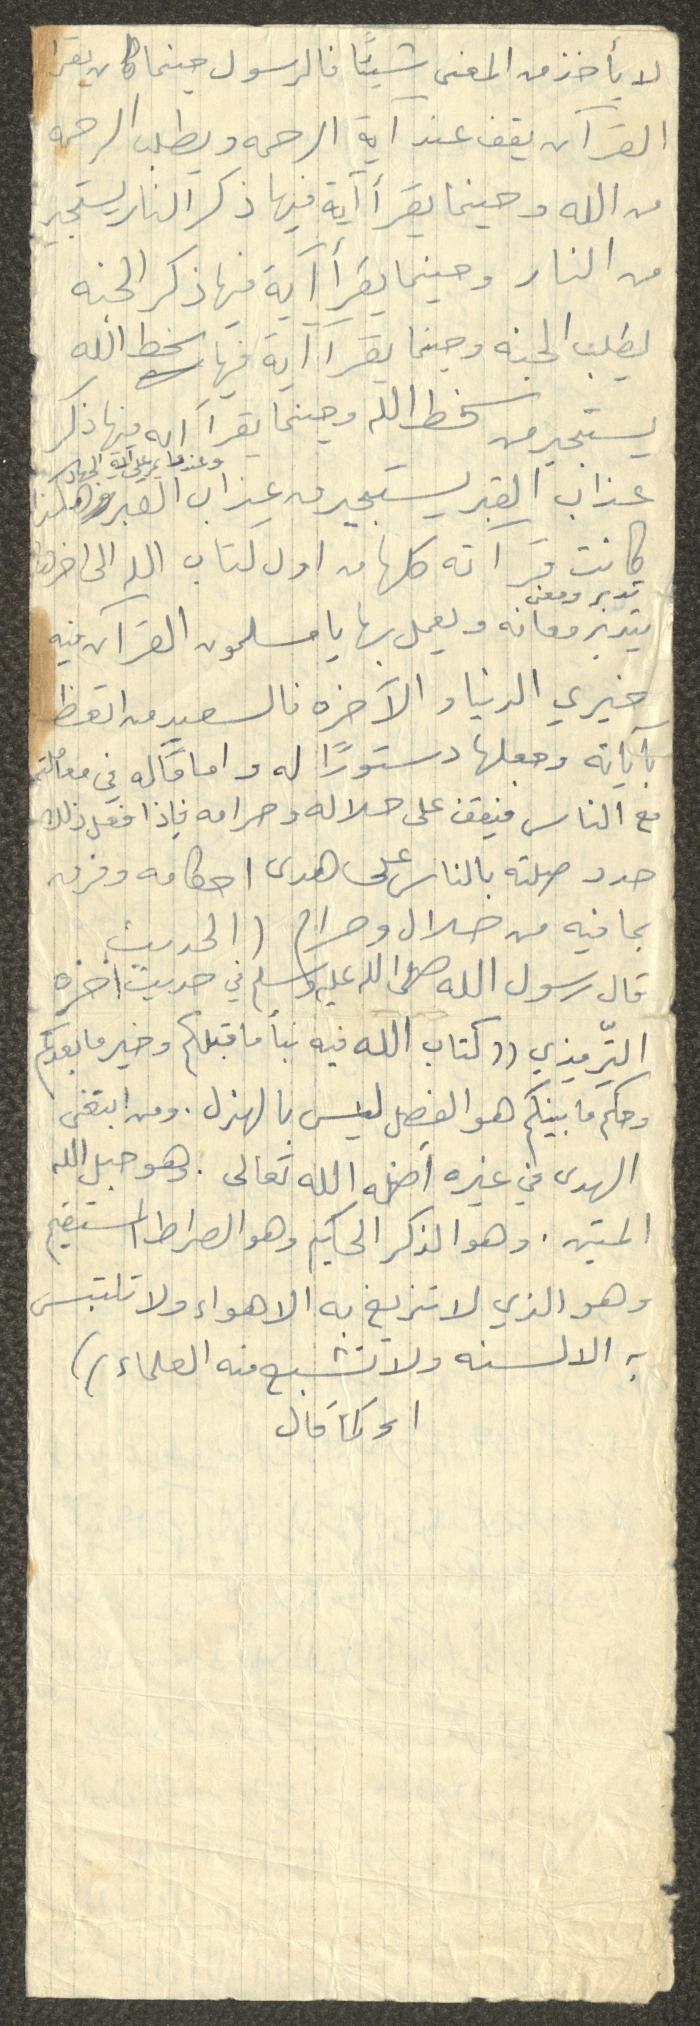 لا يأخذ من المعنى شيئًا فالرسول حينما كان يقرأ
القرآن يقف عند آية الرحمه ويطلب الرحمه
من الله وحينما يقرأ آية فيها ذكر النار يستجير
من النار وحينما يقرأ آية فيها ذكر الجنه
يطلب الجنه وحينما يقرأ آية فيها سخط الله
يستجير من سخط الله وحينما يقرأ ايه فيها ذكر
وعندما يمر على آية الجهاد
عذاب القبر يستجير من عذاب القبر وهكذا
كانت قرآته كلها من اول كتاب الله الى اخرها
تدبر ومعنى
يتدبر معانه ويعمل بها يا مسلمون القرآن فيه
خيري الدنيا والآخره فالسعيد من اتعظ
بآياته وجعلها دستورًا له واماماً له في معاملته
مع الناس فيقف على حلاله وحرامه فإذا فعل ذلك
حدد صلته بالناس على هدى احكامه وفرق
بما فيه من حلال وحرام (الحديث
قال رسول الله صلى الله عليه وسلم في حديث اخرجه
الترّميذي ((كتاب الله فيه نبأ ما قبلكم وخير ما بعدكم
وحكم ما بينكم هو الفصل ليس بالهزل . ومن ابتغى
الهدى في غيره أضله الله تعالى . وهو حبل الله
المتين . وهو الذكر الحكيم وهو الصراط المستقيم
وهو الذي لا تزيغ به الاهواء ولا تلتبس
به الالسنه ولا تشبع منه العلماء))
او كما قال